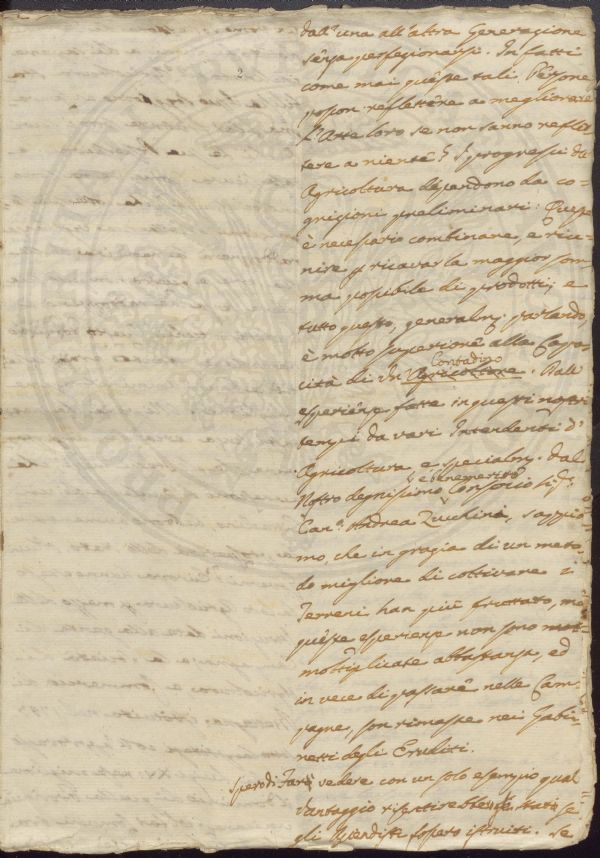 dall'una all'altra Generazione
senza perfezionarsi. In fatti
come mai queste tali Persone
posson reflettere a megliorare
l'Arte loro se non sanno reflet
tere a niente? I progressi d'
Agricoltura dipendono da co-
gnizioni preliminari: Queste
è necessario combinare, e riu-
nire p ricavar la maggior som
ma possibile di prodotti; e
tutto questo, generalm: parlando,
è molto superiore alla Capa-
cità di un Agricoltore. Dall'
Contadino
esperienze fatte in questi nostri
tempi da vari Intendenti d'
Agricoltura, e specialm: dal
Nostro degnissimo Consocio Sig:
e benemerito
Can: Andrea Zucchini, sappia-
mo, che in grazia di un meto-
do migliore di coltivare i
Terreni han più fruttato, ma
queste esperienze non sono
moltiplicate abbastanza, ed
in vece di passare nelle Cam
pagne, son rimaste nei Gabi-
netti degli Eruditi.
Spero di far vedere con un solo esempio qual
vantaggio risentirebbe lo Stato se
gli fossero istruiti. Se
2